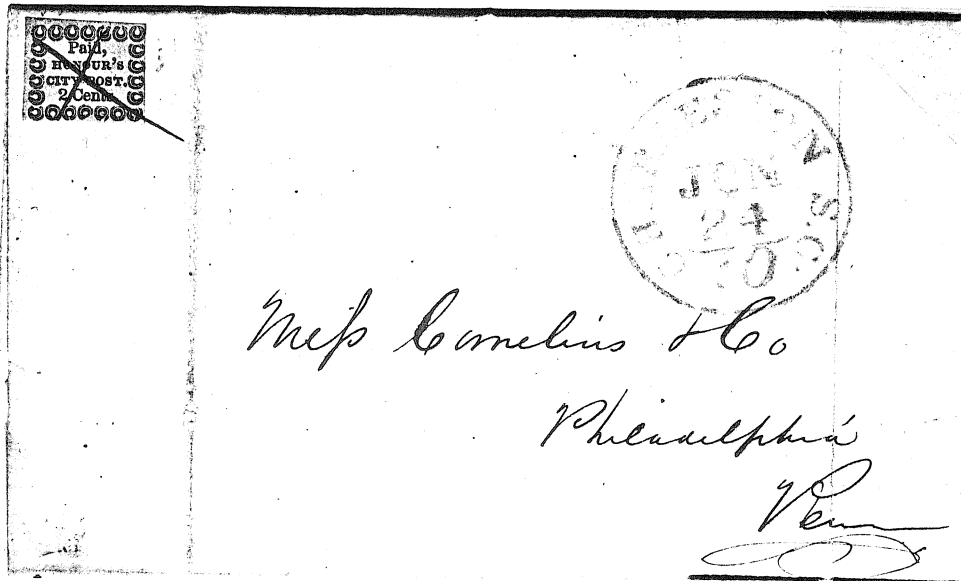 Paid,
HONOUR'S
CITY POST.
2 Cents
CHARLESTON S.C.
JUN
24
Mess Cornelius & Co
Philadelphia
Penn